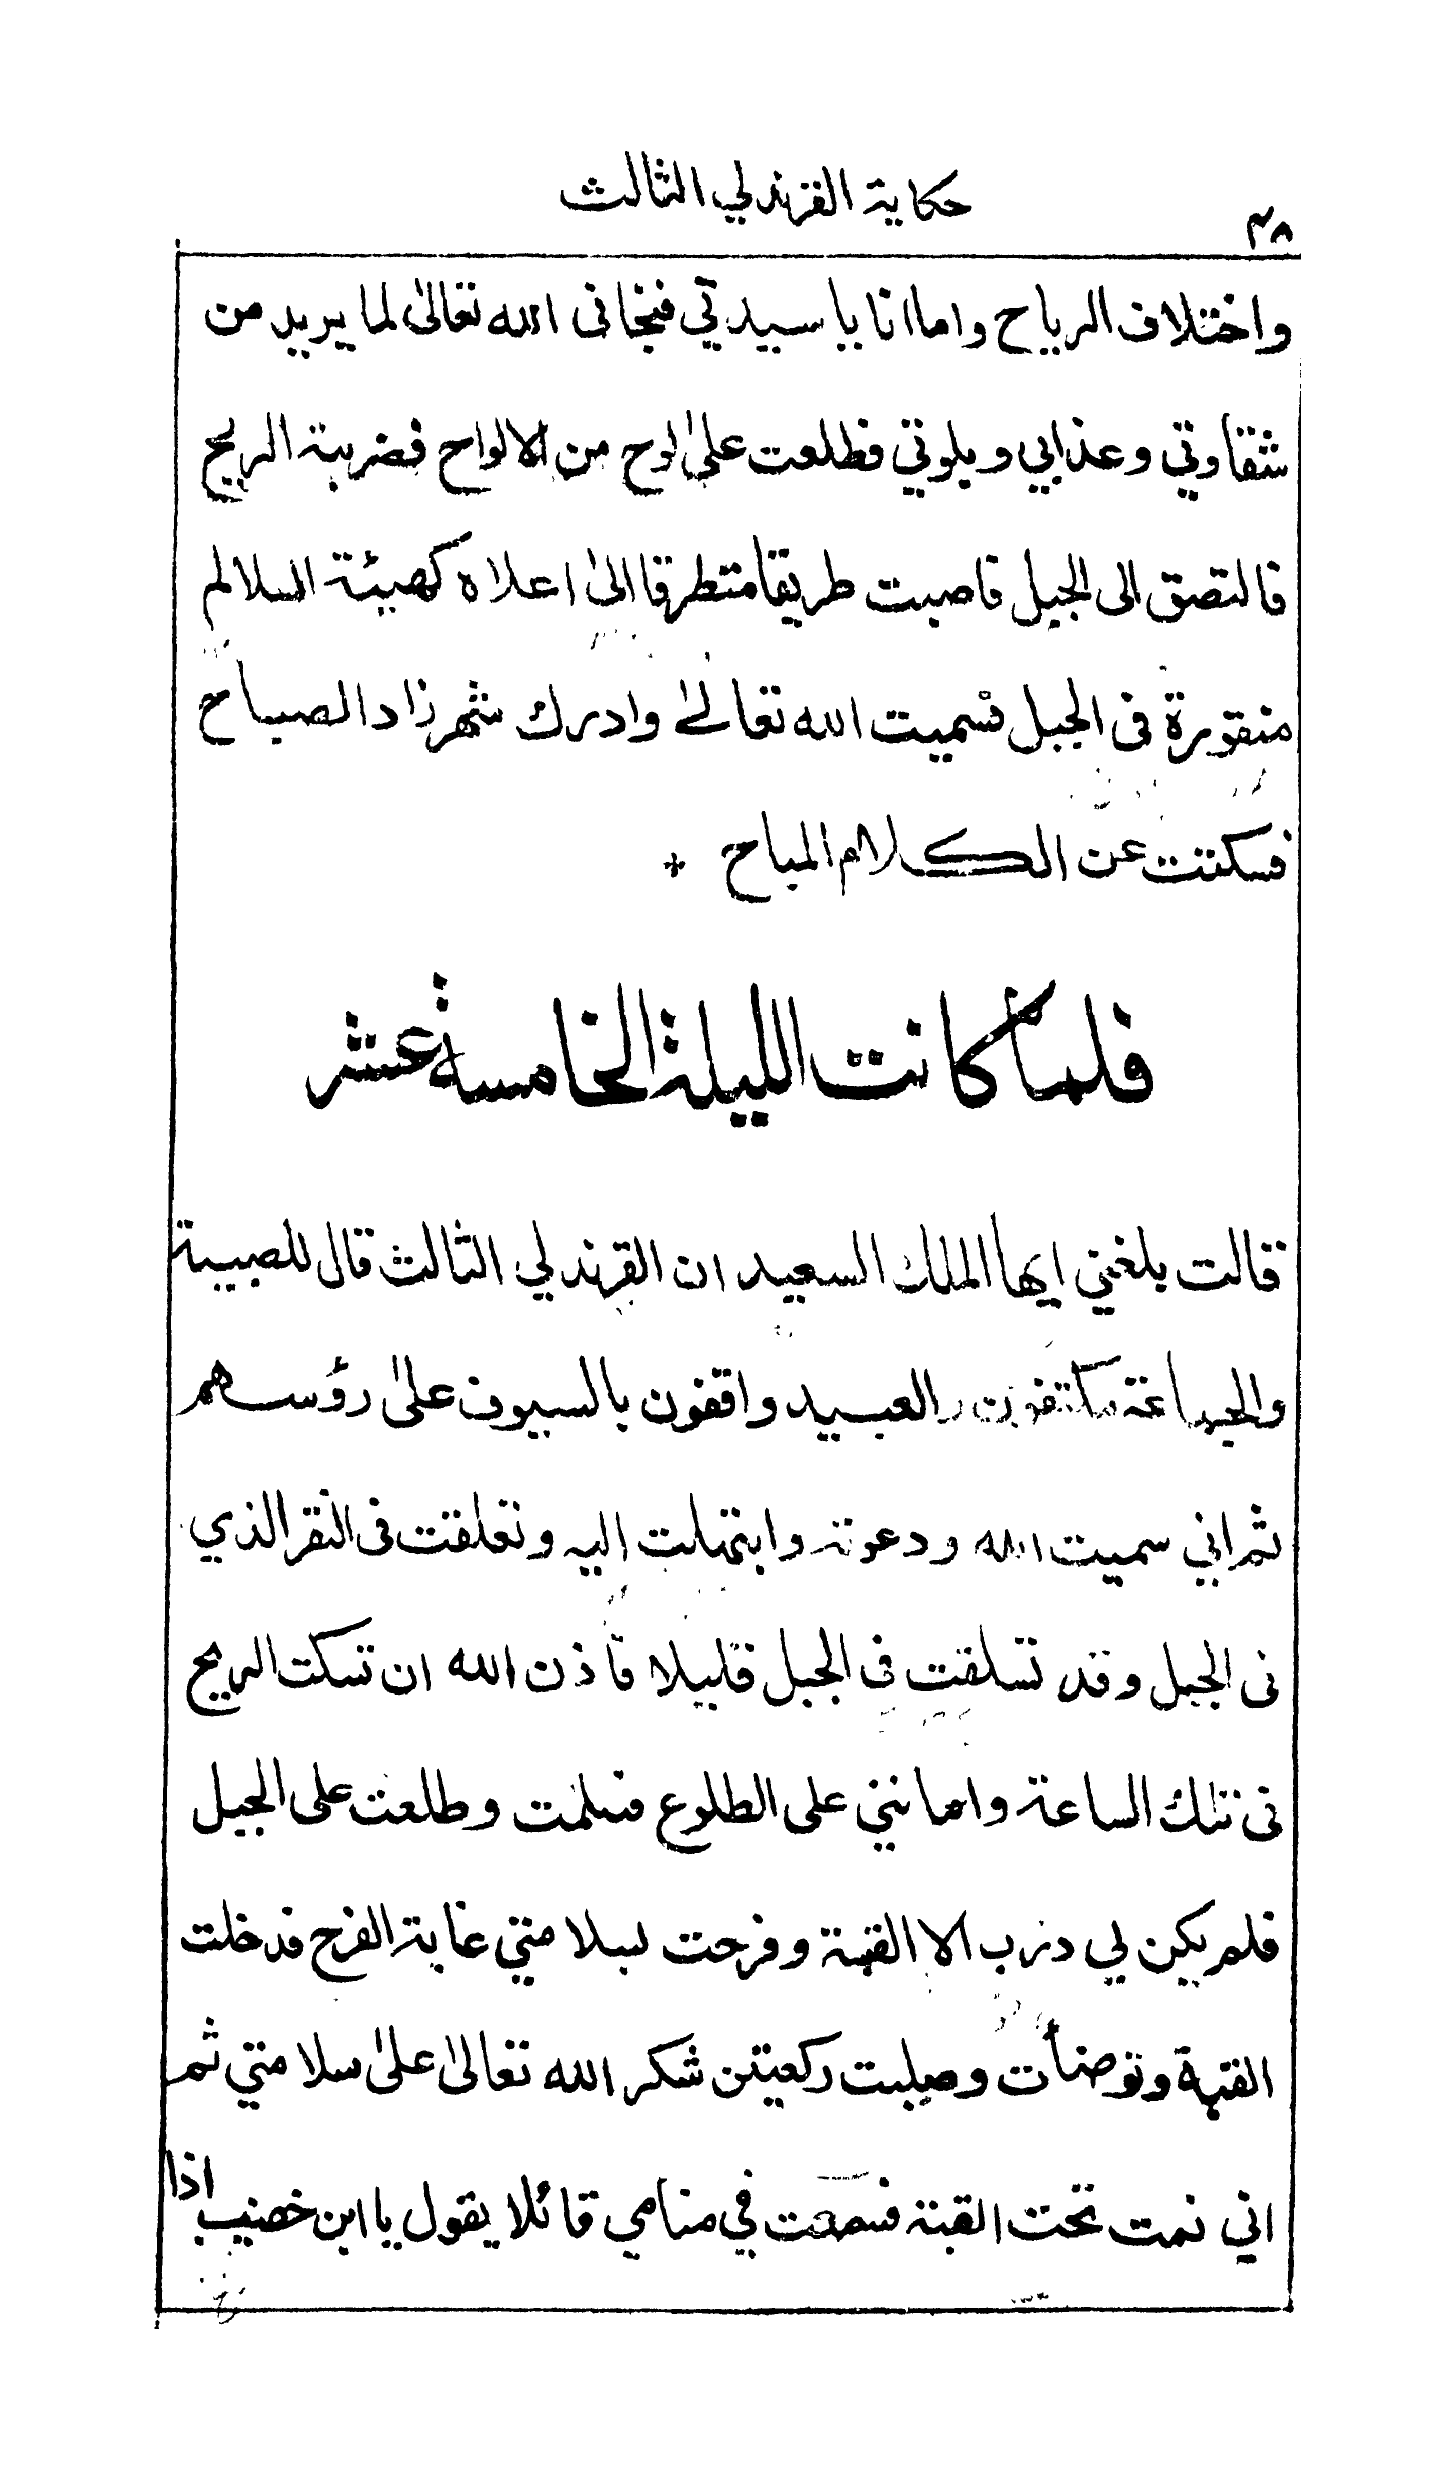 حكاية القرندلي الثالث
٣٨
واختلاف الرياح واما انا يا سيدتي فنجاني الله تعالىٰ لما يريد من
شقاوتي وعذابي وبلوتي فطلعت علىٰ لوح من الالواح فضربته الريح
فالتصق الى الجبل فاصبت طريقا متطرقا الىٰ اعلاه كهيئة السلالم
منقورة فى الجبل فسميت الله تعالىٰ وادرك شهرزاد الصباح
فسكتت عن الكلام المباح +
فلما كانت الليلة الخامسة عشر
قالت بلغني ايها الملك السعيد ان القرندلي الثالث قال للصبية
والجماعة مكتفون والعبيد واقفون بالسيوف علىٰ رؤسهم
ثم اني سميت الله ودعوته وابتهلت اليه وتعلقت فى النقر الذي
فى الجبل وقد تسلقت فى الجبل قليلا فأذن الله ان تسكت الريح
فى تلك الساعة واعانني على الطلوع فسلمت وطلعت على الجبل
فلم يكن لي درب الا القبة وفرحت بسلامتي غاية الفرح فدخلت
القبة وتوضأت وصليت ركعتين شكر الله تعالىٰ علىٰ سلامتي ثم
اني نمت تحت القبة فسمعت في منامي قائلا يقول يا ابن خصيب اذا